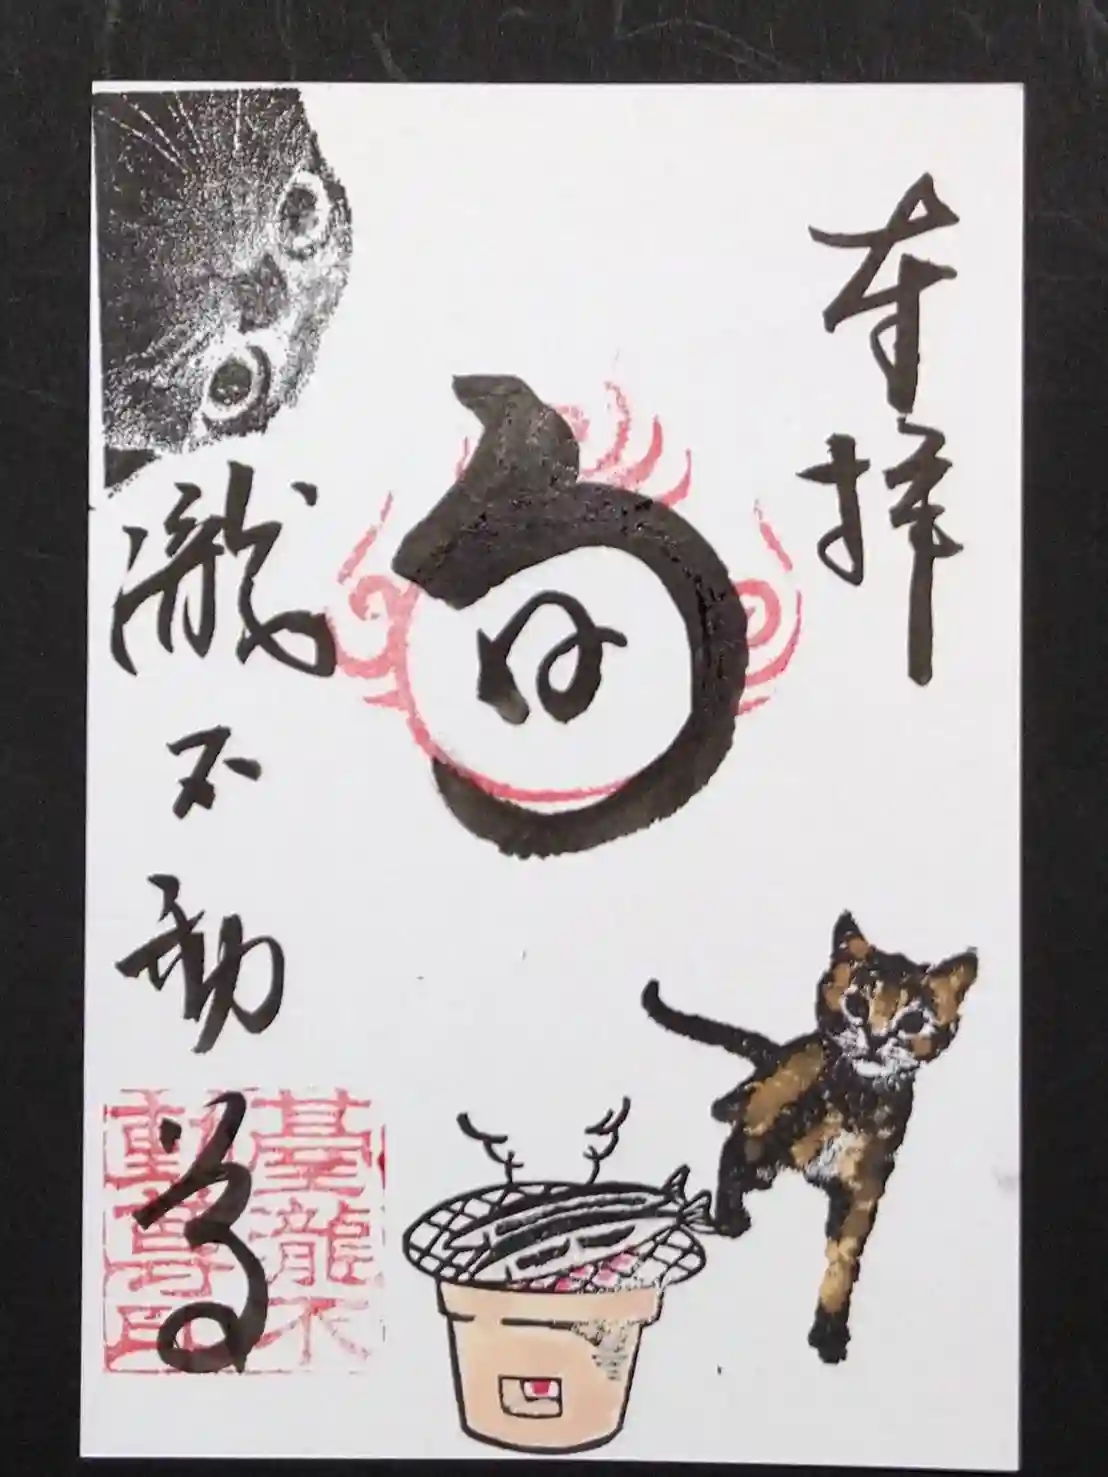 奉拝
瀧不動尊
臺瀧不
動尊印